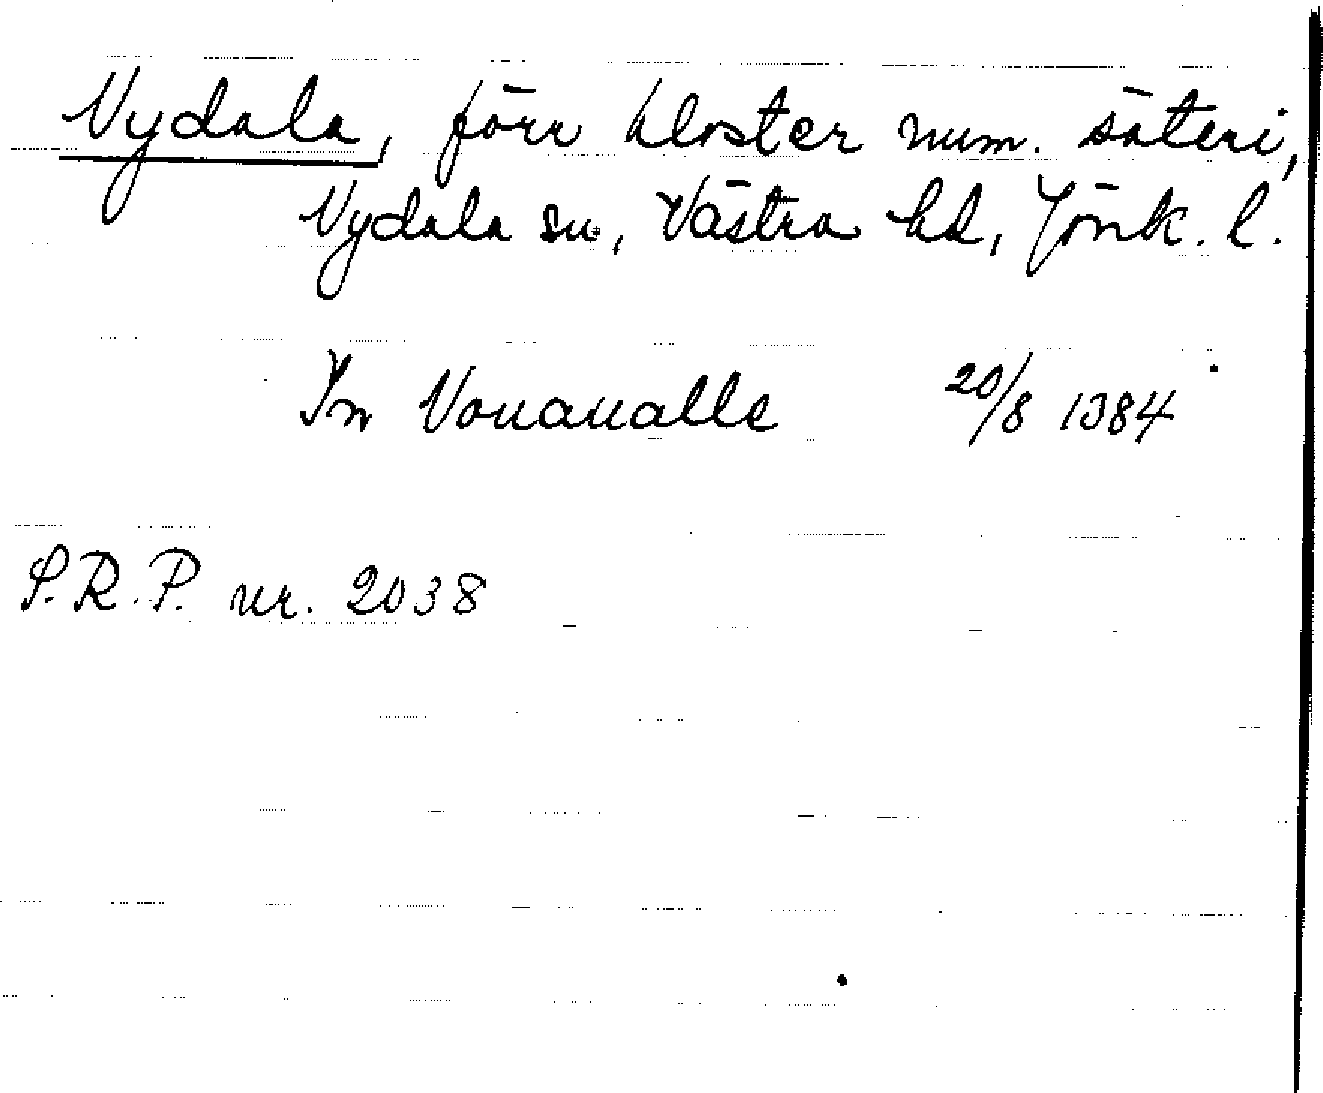 Nydala, förr kloster num. säteri,
Nydala sn, Västra hd, Jönk. l.
In Nouaualle 20/8 1384
S.R.P. nr. 2038